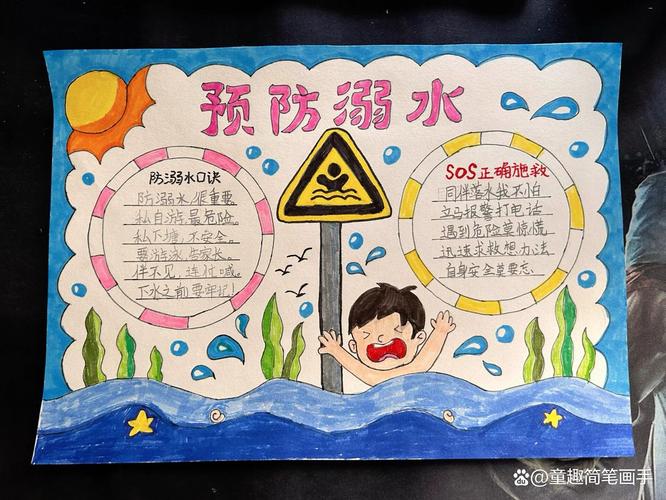 预防溺水
防溺水口诀
防溺水,很重要,
私自游,最危险。
私下塘,不安全。
要游泳,告家长。
伴不见,连忙喊。
下水之前要牢记!
SOS正确施救
同伴落水我不小白
立马报警打电话
遇到危险莫惊慌
迅速求救想办法
自身安全莫要忘
童趣简笔画手